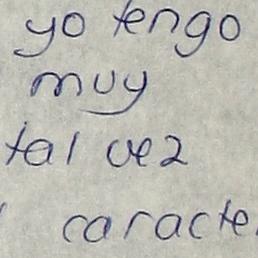 yo tengo
muy
tal vez
caracte